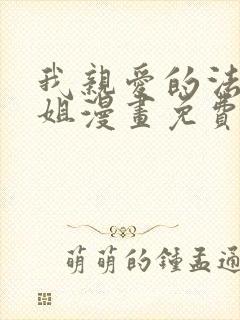 我親愛的法
姐漫畫免費
萌萌的鍾孟通